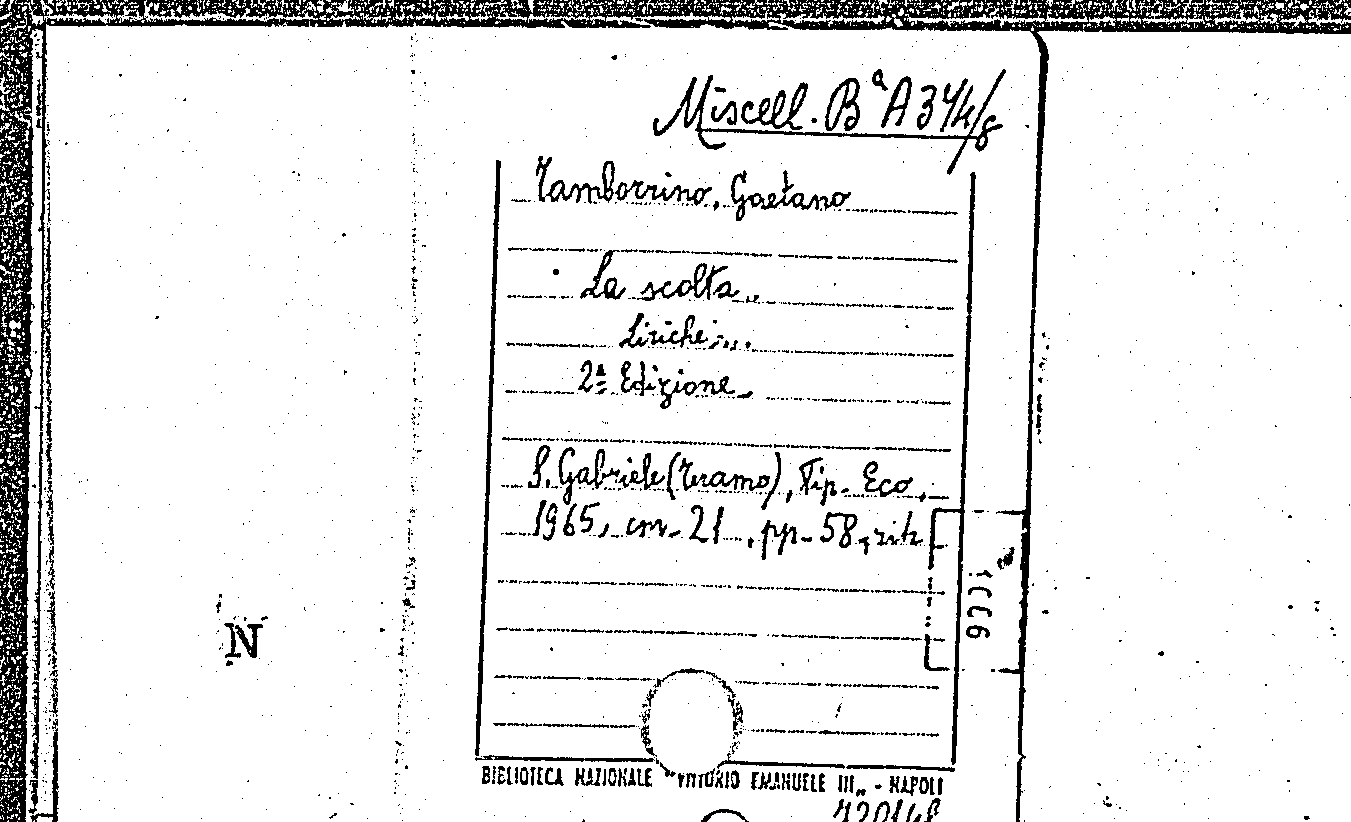 Miscell. Bª A 344/8
Tamborrino, Gaetano
La scolta..
Liriche....
2ª Edizione.
S. Gabriele (Teramo), Tip. Eco,
1965, cm. 21, pp. 58, rit.
N
BIBLIOTECA NAZIONALE "VITTORIO EMANUELE III„ - NAPOLI